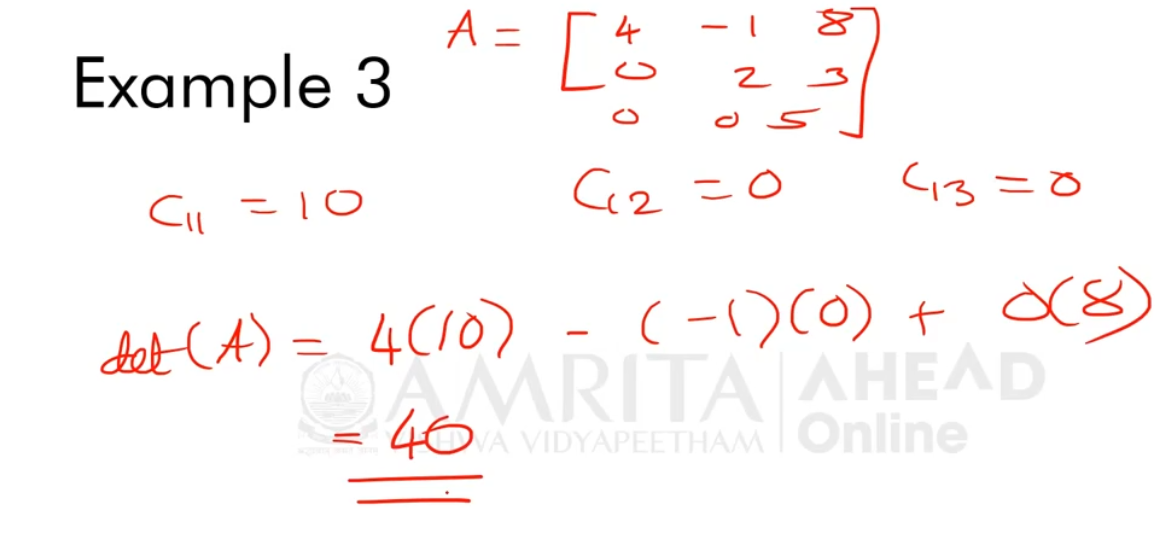 Example 3
A = [ 4 -1 8
0 2 3
0 0 5 ]
C11 = 10 C12 = 0 C13 = 0
det(A) = 4(10) - (-1)(0) + 0(8)
= 40
AMRITA VISHWA VIDYAPEETHAM | AHEAD Online